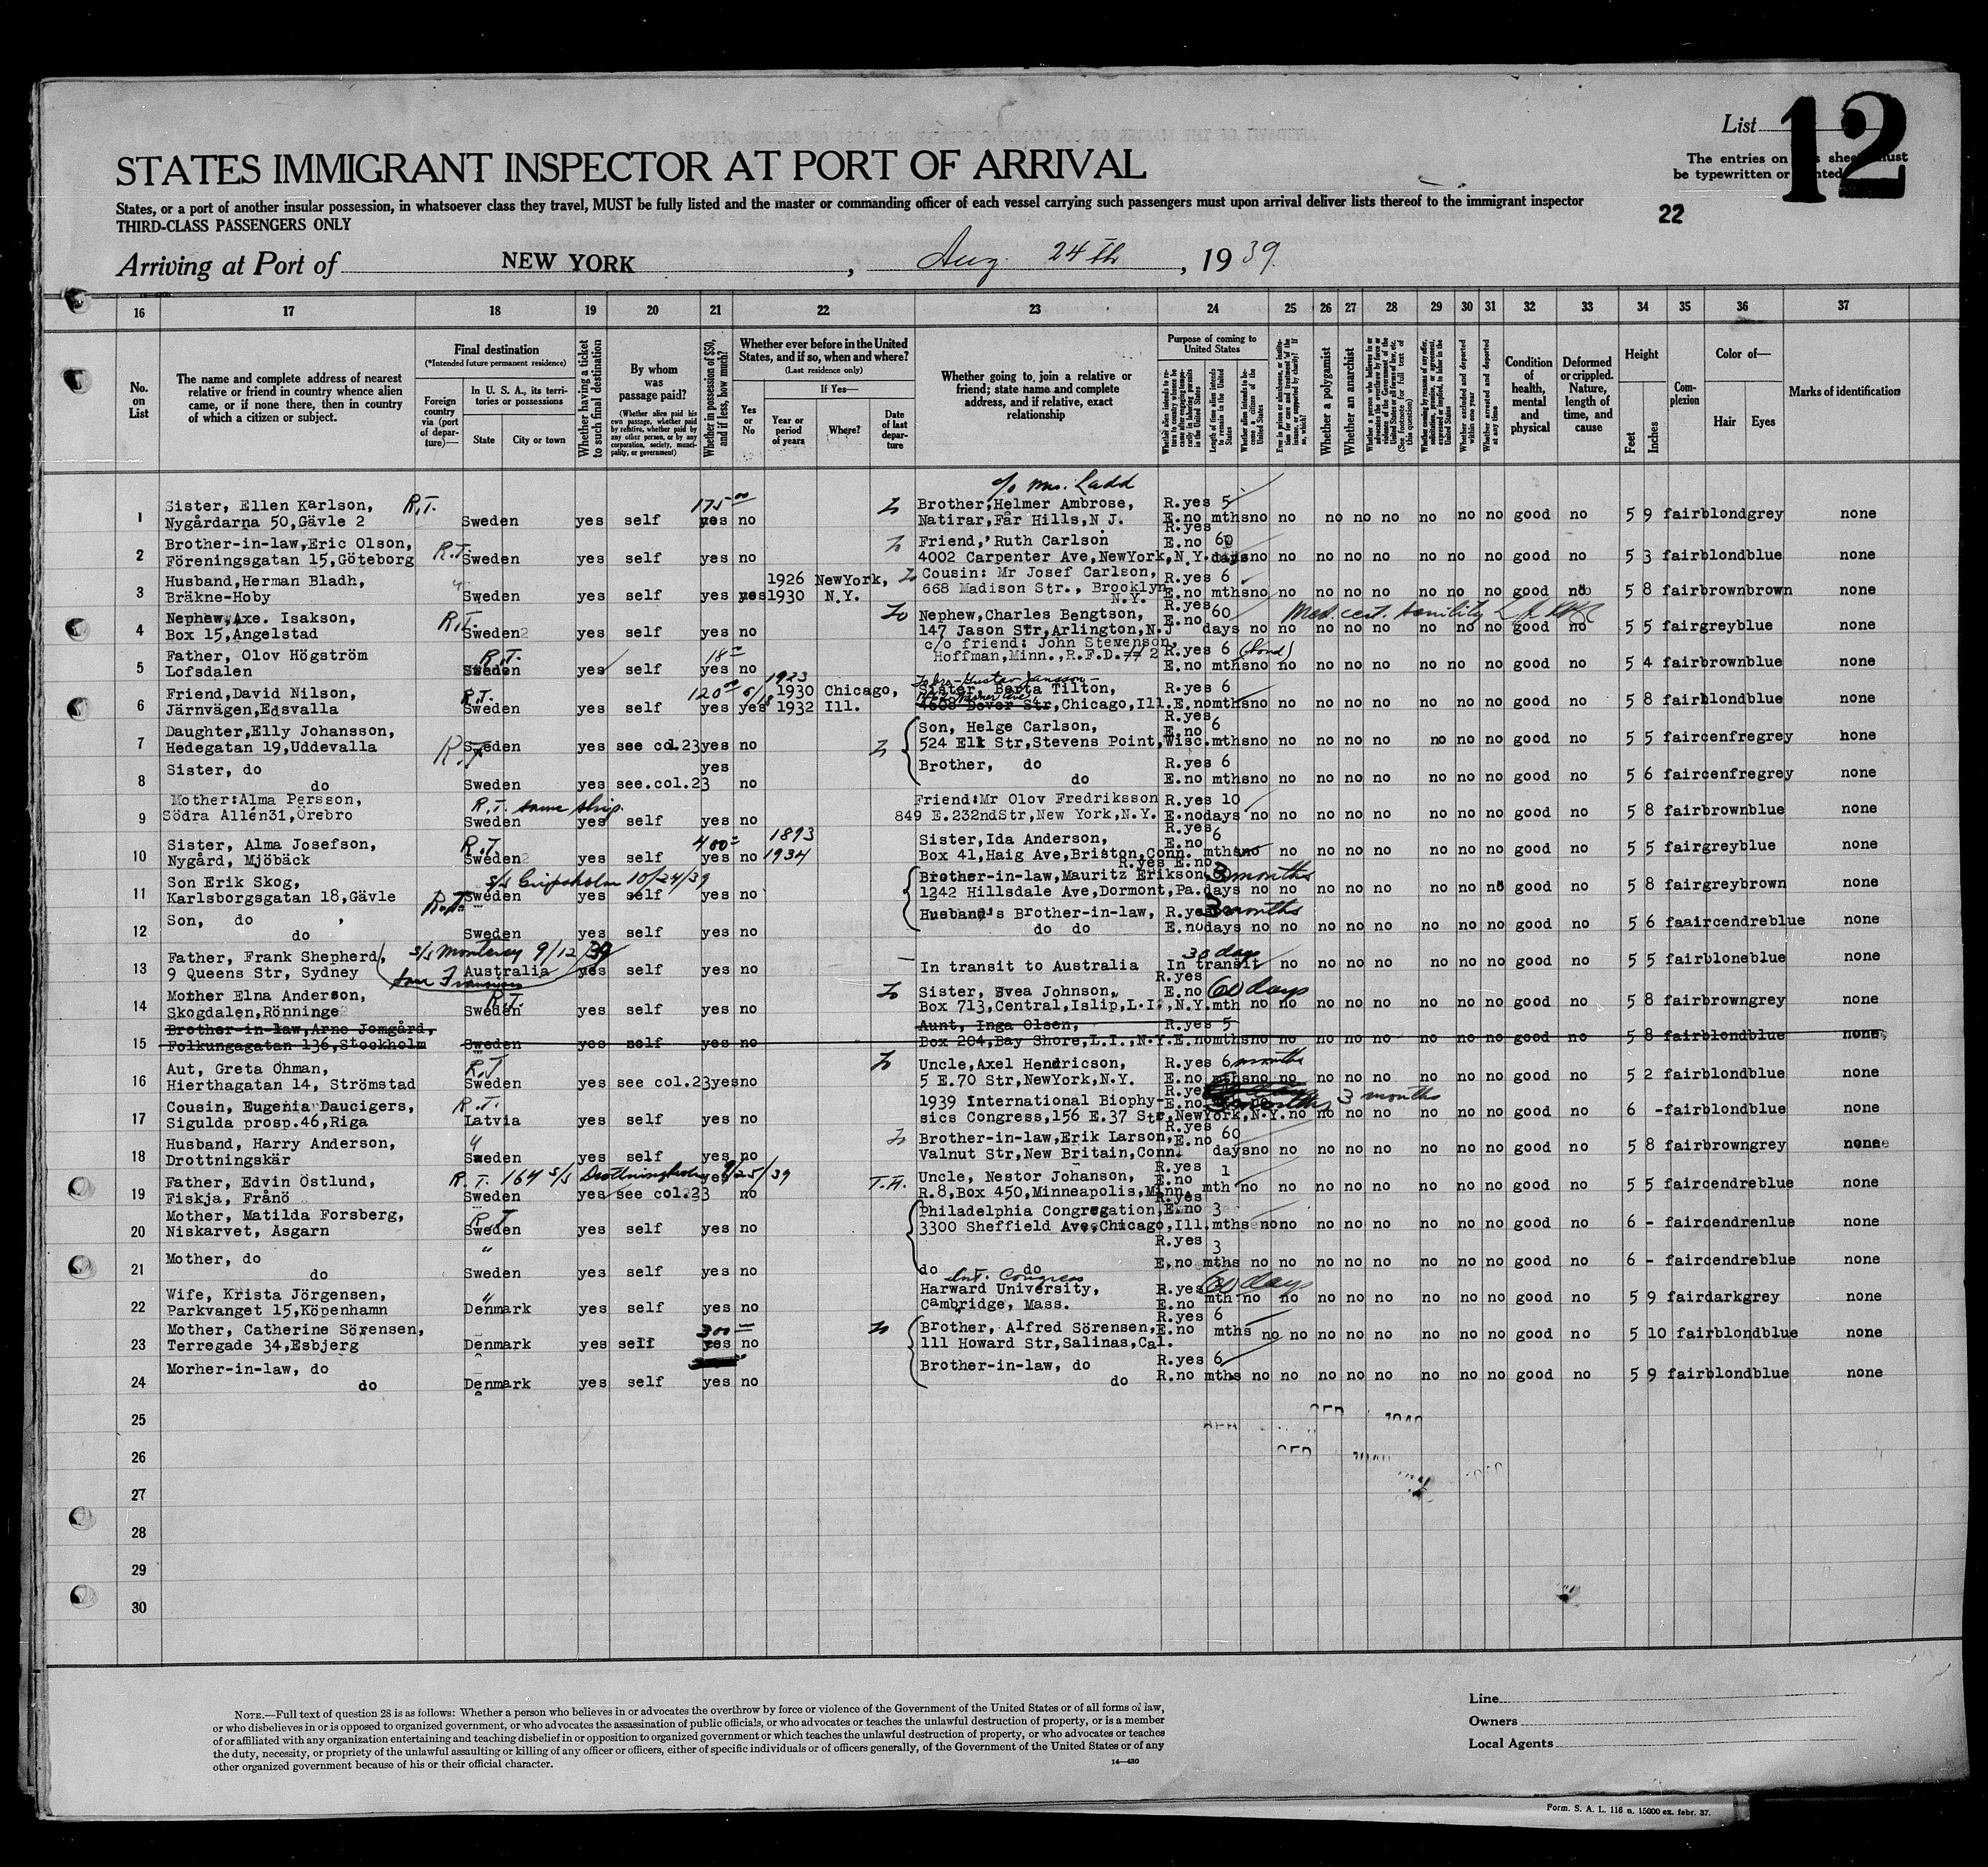 List
12
The entries on this sheet must
be typewritten or printed
STATES IMMIGRANT INSPECTOR AT PORT OF ARRIVAL
States, or a port of another insular possession, in whatsoever class they travel, MUST be fully listed and the master or commanding officer of each vessel carrying such passengers must upon arrival deliver lists thereof to the immigrant inspector
THIRD-CLASS PASSENGERS ONLY
22
Arriving at Port of NEW YORK, Aug. 24th, 1939.
16 17 18 19 20 21 22 23 24 25 26 27 28 29 30 31 32 33 34 35 36 37
No. on List
The name and complete address of nearest relative or friend in country whence alien came, or if none there, then in country of which a citizen or subject.
Final destination
(*Intended future permanent residence)
Foreign country via (port of departure)—
In U. S. A., its territories or possessions
State
City or town
Whether having a ticket to such final destination
By whom was passage paid?
(Whether alien paid his own passage, whether paid by relative, whether paid by any other person, or by any corporation, society, municipality, or government)
Whether in possession of $50, and if less, how much?
Whether ever before in the United States, and if so, when and where?
(Last residence only)
Yes or No
If Yes—
Year or period of years
Where?
Date of last departure
Whether going to join a relative or friend; state name and complete address, and if relative, exact relationship
Purpose of coming to United States
Length of time alien intends to remain in the United States
Whether alien intends to become a citizen of the United States
Whether a polygamist
Whether an anarchist
Whether excluded and deported within one year
Whether arrested and deported at any time
Condition of health, mental and physical
Deformed or crippled. Nature, length of time, and cause
Height
Feet
Inches
Complexion
Color of—
Hair
Eyes
Marks of identification
c/o Mrs. Ladd
1 Sister, Ellen Karlson, R.T. 175 00 Brother,Helmer Ambrose, R.yes 5
Nygårdarna 50,Gävle 2 Sweden yes self yes no Natirar,Får Hills,N J. E.no mths no no no no no no no no good no 5 9 fair blond grey none
2 Brother-in-law,Eric Olson, R.T. Friend,'Ruth Carlson R.yes E.no 60
Föreningsgatan 15,Göteborg Sweden yes self yes no 4002 Carpenter Ave,NewYork,N.Y. days no no no no no no no no no good no 5 3 fair blond blue none
3 Husband,Herman Bladh, 1926 NewYork, Cousin: Mr Josef Carlson, R.yes 6
Bräkne-Hoby Sweden yes self yes yes 1930 N.Y. 668 Madison Str., Brooklyn N.Y. E.no mths no no no no no no no no no good no 5 8 fair brown brown none
4 Nephew,Axe. Isakson, R.T. Nephew,Charles Bengtson, R.yes E.no 60 Med. cert. senility
Box 15,Angelstad Sweden yes self yes no 147 Jason Str,Arlington,N.J days no no no no no no no no good no 5 5 fair grey blue none
5 Father, Olov Högström R.T. 18 c/o friend: John Stevenson,
Lofsdalen Sweden yes self yes no Hoffman,Minn.,R.F.D. # 2 R.yes 6 (bond) E.no mths no no no no no no no no no good no 5 4 fair brown blue none
6 Friend,David Nilson, R.T. 120 00 1923 1930 Chicago, To bro-Gustav Jansson- Sister, Berta Tilton, R.yes 6
Järnvägen,Edsvalla Sweden yes self yes yes 1932 Ill. 4608 Dover Str,Chicago,Ill. E.no mths no no no no no no no no no good no 5 8 fair blond blue none
7 Daughter,Elly Johansson, Son, Helge Carlson, R.yes E.no 6
Hedegatan 19,Uddevalla R.T. Sweden yes see col.23 yes no 524 Elk Str,Stevens Point,Wisc. mths no no no no no no no no no good no 5 5 fair cenfre grey none
8 Sister, do yes Brother, do R.yes 6
do Sweden yes see.col.23 no do E.no mths no no no no no no no no no good no 5 6 fair cenfre grey none
9 Mother:Alma Persson, R.T. same ship. Friend:Mr Olov Fredriksson R.yes 10
Södra Allén31,Örebro Sweden yes self yes no 849 E.232ndStr,New York,N.Y. E.no days no no no no no no no no no good no 5 8 fair brown blue none
10 Sister, Alma Josefson, R.T. 400 1893 Sister,Ida Anderson, R.yes E.no 6
Nygård, Mjöbäck Sweden yes self yes no 1934 Box 41,Haig Ave,Briston,Conn. mths no no no no no no no no no good no 5 5 fair grey blue none
11 Son Erik Skog, s/s Gripsholm 10/24/39 R.yes E.no Brother-in-law,Mauritz Erikson, 3 months
Karlsborgsgatan 18,Gävle R.T. Sweden yes self yes no 1242 Hillsdale Ave,Dormont,Pa. days no no no no no no no no no good no 5 8 fair grey brown none
12 Son, do Husband's Brother-in-law, R.yes 3 months
do Sweden yes self yes no do do E.no days no no no no no no no no no good no 5 6 faair cendre blue none
13 Father, Frank Shepherd, s/s Monterey 9/12/39 30 days
9 Queens Str, Sydney San Francisco Australia yes self yes no In transit to Australia In transit no no no no no no no good no 5 5 fair blone blue none
14 Mother Elna Anderson, R.T. Sister, Svea Johnson, R.yes E.no 60 days
Skogdalen,Rönninge Sweden yes self yes no Box 713,Central,Islip,L.I.,N.Y. mth no no no no no no no no good no 5 8 fair brown grey none
15 Brother-in-law,Arne Jomgård, Aunt, Inga Olsen, R.yes 5
Folkungagatan 136,Stockholm Sweden yes self yes no Box 204,Bay Shore,L.I.,N.Y. E.no mths no no no no no no no no no good no 5 8 fair blond blue none
16 Aut, Greta Öhman, R.T. Uncle,Axel Hendricson, R.yes 6 months
Hierthagatan 14, Strömstad Sweden yes see col.23 yes no 5 E.70 Str,NewYork,N.Y. E.no mths no no no no no no no no no good no 5 2 fair blond blue none
17 Cousin, Eugenia Daucigers, R.T. 1939 International Biophy- R.yes E.no 3 months 3 months
Sigulda prosp.46, Riga Latvia yes self yes no sics Congress,156 E.37 Str,NewYork,N.Y. no no no no no no no no good no 6 - fair blond blue none
18 Husband, Harry Anderson, Brother-in-law,Erik Larson, R.yes E.no 60
Drottningskär Sweden yes self yes no Valnut Str,New Britain,Conn. days no no no no no no no no no good no 5 8 fair brown grey none
19 Father, Edvin Östlund, R.T. 164 s/s Drottningholm 9/25/39 T.A. Uncle, Nestor Johanson, R.yes E.no 1
Fiskja, Frånö Sweden yes see col.23 no R.8,Box 450,Minneapolis,Minn. mth no no no no no no no no no good no 5 5 fair cendre blue none
20 Mother, Matilda Forsberg, R.T. Philadelphia Congregation, R.yes E.no 3
Niskarvet, Asgarn Sweden yes self yes no 3300 Sheffield Ave,Chicago,Ill. mths no no no no no no no no no good no 6 - fair cendre nlue none
21 Mother, do R.yes 3
do Sweden yes self yes no do do E.no mths no no no no no no no no no good no 6 - fair cendre blue none
22 Wife, Krista Jörgensen, Int. Congress Harward University, R.yes 60 days
Parkvanget 15,Köpenhamn Denmark yes self yes no Cambridge, Mass. E.no mth no no no no no no no no no good no 5 9 fair dark grey none
23 Mother, Catherine Sörensen, 300 Brother, Alfred Sörensen, R.yes 6 E.no mths
Terregade 34,Esbjerg Denmark yes self yes no 111 Howard Str,Salinas,Cal. no no no no no no no no no good no 5 10 fair blond blue none
24 Morher-in-law, do Brother-in-law, do R.yes 6
do Denmark yes self yes no do R.no mths no no no no no no no no no good no 5 9 fair blond blue none
25
26
27
28
29
30
NOTE.—Full text of question 28 is as follows: Whether a person who believes in or advocates the overthrow by force or violence of the Government of the United States or of all forms of law,
or who disbelieves in or is opposed to organized government, or who advocates the assassination of public officials, or who advocates or teaches the unlawful destruction of property, or is a member
of or affiliated with any organization entertaining and teaching disbelief in or opposition to organized government or which teaches the unlawful destruction of property, or who advocates or teaches
the duty, necessity, or propriety of the unlawful assaulting or killing of any officer or officers, either of specific individuals or of officers generally, of the Government of the United States or of any
other organized government because of his or their official character.
14—430
Line
Owners
Local Agents
Form. S. A. L. 116 n. 15000 ex. febr. 37.